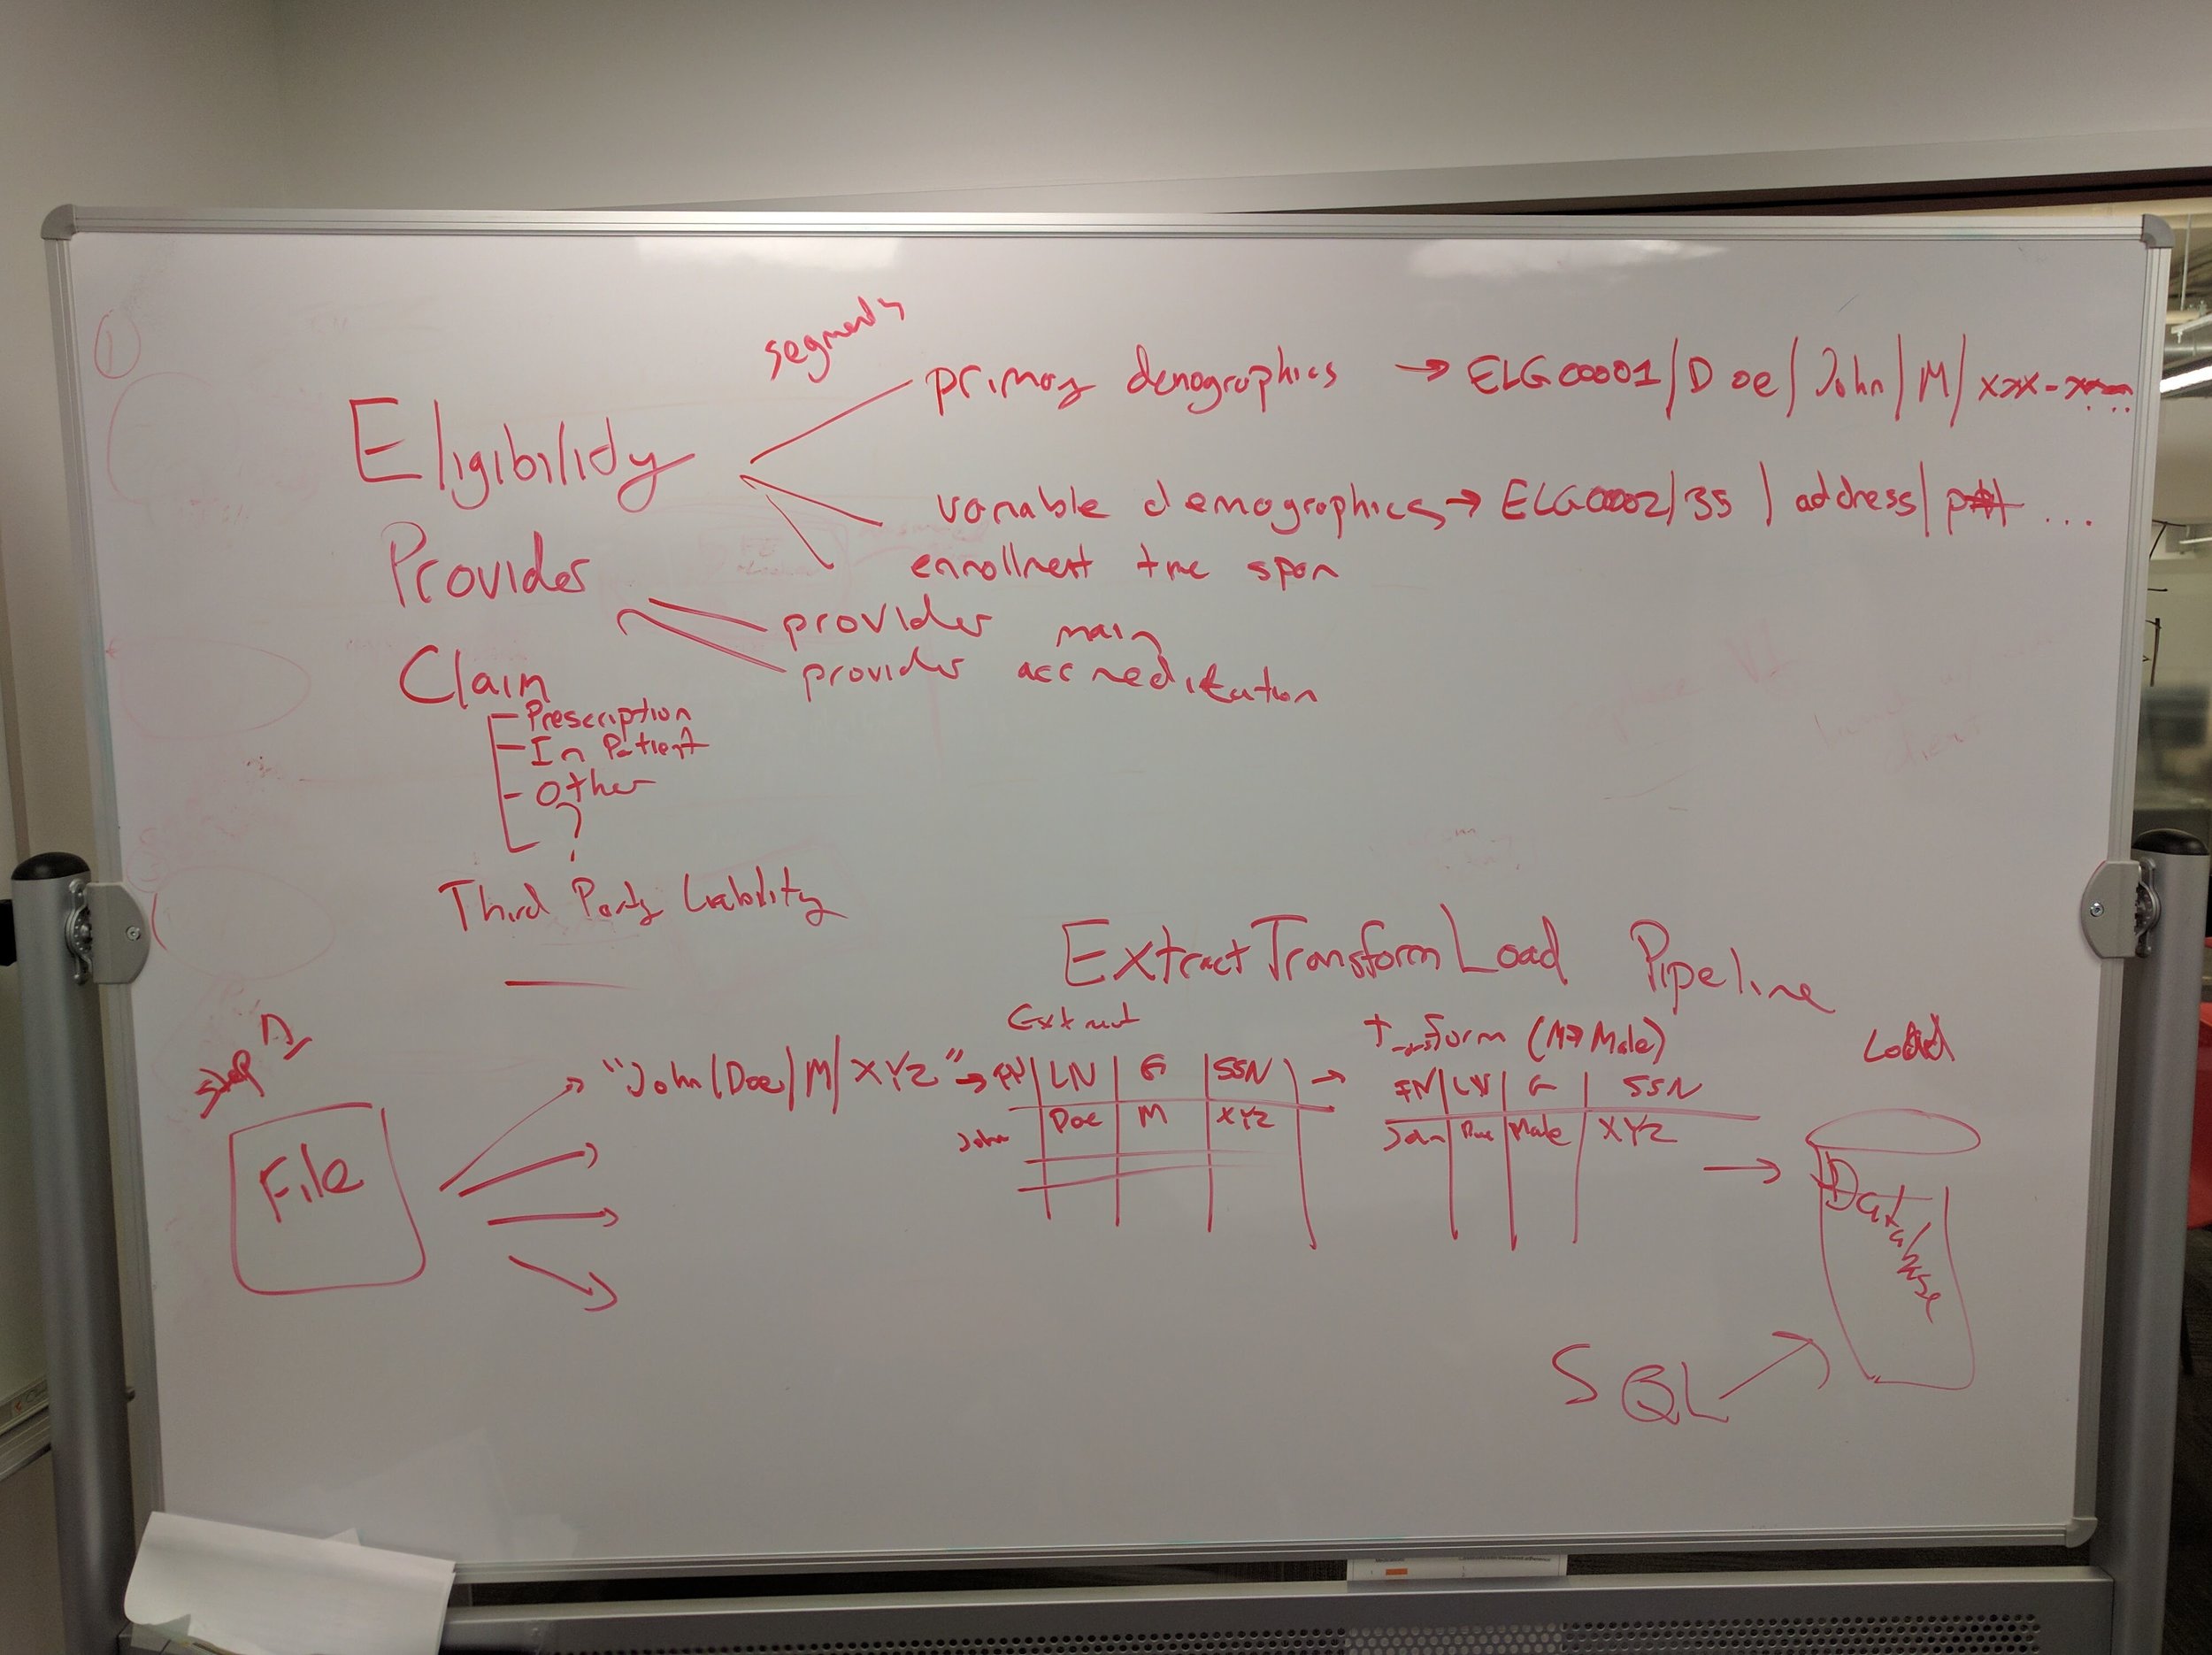 segments
primary demographics → ELG00001|Doe|John|M|xxx-
Eligibility
variable demographics → ELG0002|35|address| ...
enrollment time span
Provider
provider main
provider accreditation
Claim
Prescription
In Patient
Other
?
Third Party Liability
Extract Transform Load Pipeline
Extract
Transform (M→Male)
Load
File
"John|Doe|M|XYZ" → FN|LN|G|SSN →
John|Doe|M|XYZ
FN|LN|G|SSN
John|Doe|Male|XYZ
Database
SQL